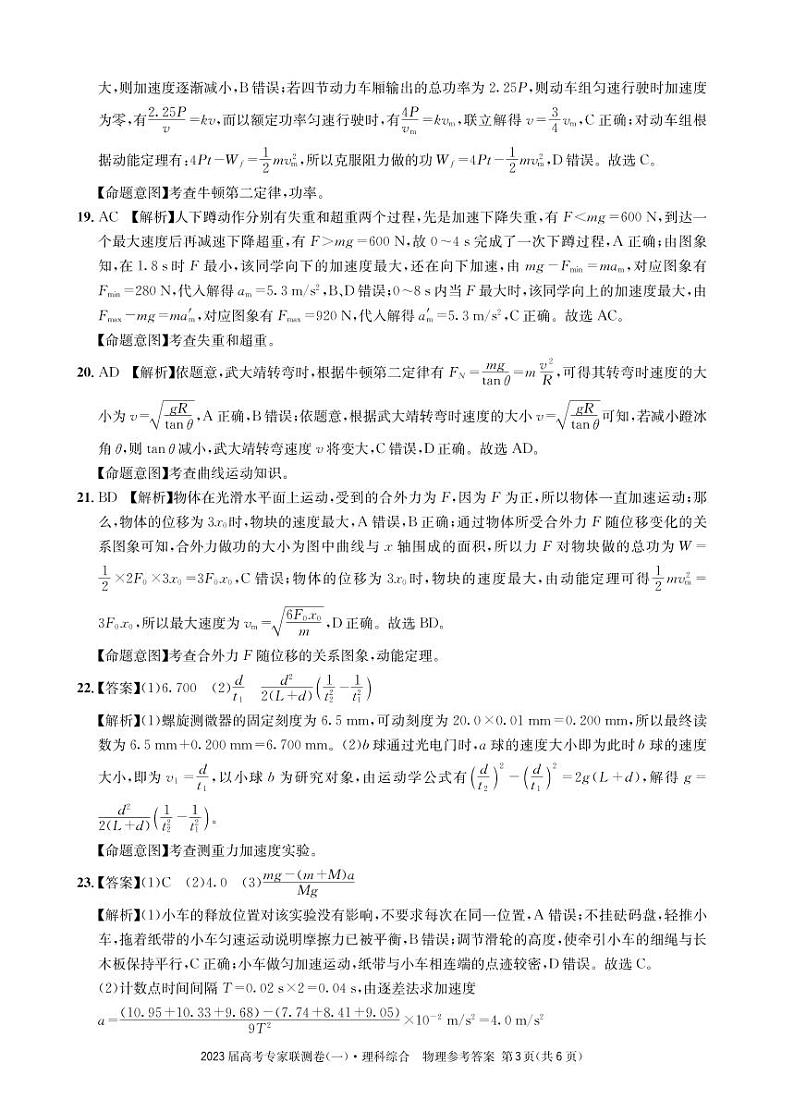 大,则加速度逐渐减小,B错误;若四节动力车厢输出的总功率为 2.25P,则动车组匀速行驶时加速度
为零,有\frac{2.25P}{v}=kv,而以额定功率匀速行驶时,有\frac{4P}{v_m}=kv_m,联立解得 v=\frac{3}{4}v_m,C正确;对动车组根
据动能定理有:4Pt-W_f=\frac{1}{2}mv_m^2,所以克服阻力做的功 W_f=4Pt-\frac{1}{2}mv_m^2,D错误。故选C。
【命题意图】考查牛顿第二定律,功率。
19. AC 【解析】人下蹲动作分别有失重和超重两个过程,先是加速下降失重,有 F<mg=600 N,到达一
个最大速度后再减速下降超重,有 F>mg=600 N,故 0~4 s 完成了一次下蹲过程,A正确;由图象
知,在 1.8 s 时 F 最小,该同学向下的加速度最大,还在向下加速,由 mg-F_{min}=ma_m,对应图象有
F_{min}=280 N,代入解得 a_m=5.3 m/s²,B、D错误;0~8 s 内当 F 最大时,该同学向上的加速度最大,由
F_{max}-mg=ma'_m,对应图象有 F_{max}=920 N,代入解得 a'_m=5.3 m/s²,C正确。故选AC。
【命题意图】考查失重和超重。
20. AD 【解析】依题意,武大靖转弯时,根据牛顿第二定律有 F_N=\frac{mg}{tanθ}=m\frac{v^2}{R},可得其转弯时速度的大
小为 v=\sqrt{\frac{gR}{tanθ}},A正确,B错误;依题意,根据武大靖转弯时速度的大小 v=\sqrt{\frac{gR}{tanθ}}可知,若减小蹬冰
角 θ,则 tanθ 减小,武大靖转弯速度 v 将变大,C错误,D正确。故选AD。
【命题意图】考查曲线运动知识。
21. BD 【解析】物体在光滑水平面上运动,受到的合外力为 F,因为 F 为正,所以物体一直加速运动;那
么,物体的位移为 3x_0时,物块的速度最大,A错误,B正确;通过物体所受合外力 F 随位移变化的关
系图象可知,合外力做功的大小为图中曲线与 x 轴围成的面积,所以力 F 对物块做的总功为 W=
\frac{1}{2}×2F_0×3x_0=3F_0x_0,C错误;物体的位移为 3x_0时,物块的速度最大,由动能定理可得\frac{1}{2}mv_m^2=
3F_0x_0,所以最大速度为 v_m=\sqrt{\frac{6F_0x_0}{m}},D正确。故选BD。
【命题意图】考查合外力 F 随位移的关系图象,动能定理。
22.【答案】(1)6.700 (2)\frac{d}{t_1} \frac{d^2}{2(L+d)}(\frac{1}{t_2^2}-\frac{1}{t_1^2})
【解析】(1)螺旋测微器的固定刻度为 6.5 mm,可动刻度为 20.0×0.01 mm=0.200 mm,所以最终读
数为 6.5 mm+0.200 mm=6.700 mm。(2)b 球通过光电门时,a 球的速度大小即为此时 b 球的速度
大小,即为 v_1=\frac{d}{t_1},以小球 b 为研究对象,由运动学公式有(\frac{d}{t_2})^2-(\frac{d}{t_1})^2=2g(L+d),解得 g=
\frac{d^2}{2(L+d)}(\frac{1}{t_2^2}-\frac{1}{t_1^2})。
【命题意图】考查测重力加速度实验。
23.【答案】(1)C (2)4.0 (3)\frac{mg-(m+M)a}{Mg}
【解析】(1)小车的释放位置对该实验没有影响,不要求每次在同一位置,A错误;不挂砝码盘,轻推小
车,拖着纸带的小车匀速运动说明摩擦力已被平衡,B错误;调节滑轮的高度,使牵引小车的细绳与长
木板保持平行,C正确;小车做匀加速运动,纸带与小车相连端的点迹较密,D错误。故选C。
(2)计数点时间间隔 T=0.02 s×2=0.04 s,由逐差法求加速度
a=\frac{(10.95+10.33+9.68)-(7.74+8.41+9.05)}{9T^2}×10^{-2} m/s²=4.0 m/s²
2023届高考专家联测卷(一)·理科综合 物理参考答案 第3页(共6页)